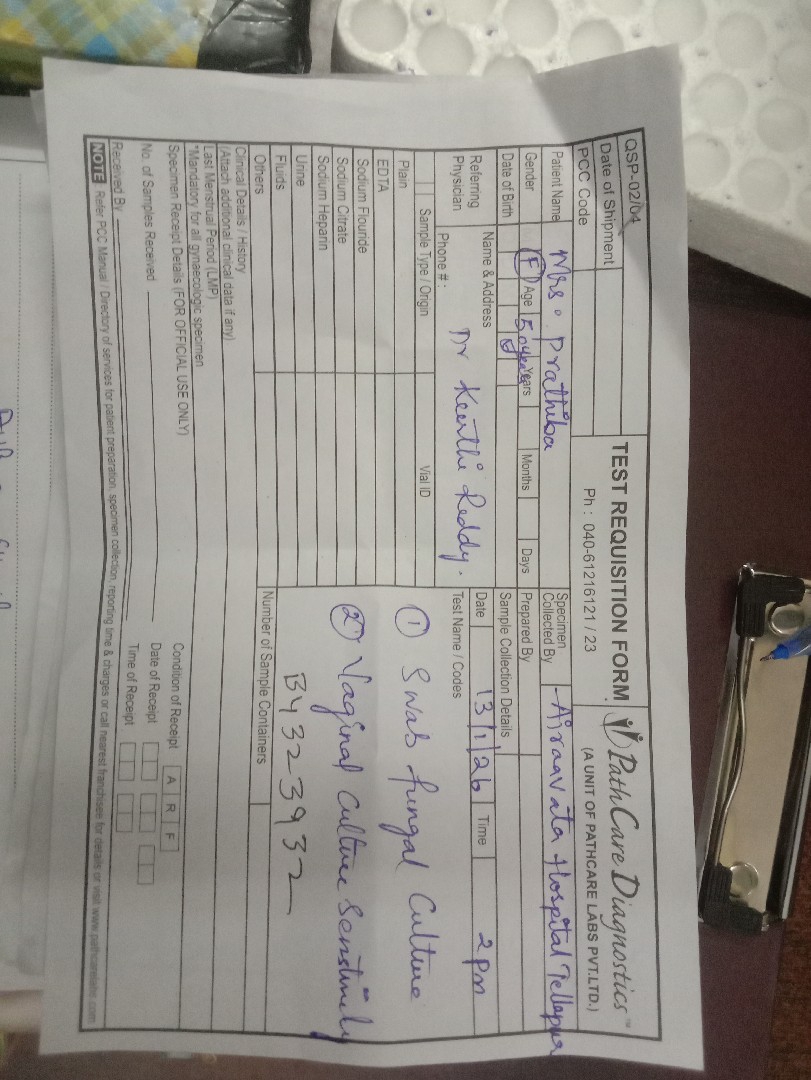 QSP-02/04
TEST REQUISITION FORM
PathCare Diagnostics™
Date of Shipment
Ph : 040-61216121 / 23
(A UNIT OF PATHCARE LABS PVT.LTD.)
PCC Code
Patient Name Mrs. Prathiba
Specimen Collected By Airaavata Hospital Tellapur
Gender F Age 50 years Years Months Days
Prepared By
Date of Birth
Sample Collection Details
Referring Physician
Name & Address
Dr Keerthi Reddy.
Date 13/1/26 Time 2 pm
Phone # :
Test Name / Codes
Sample Type / Origin
Vial ID
Plain
① Swab fungal Culture
EDTA
Sodium Flouride
Sodium Citrate
② Vaginal Culture
Sodium Heparin
Urine
B4323932
Fluids
Others
Number of Sample Containers
Clinical Details / History
(Attach additional clinical data if any)
Last Menstrual Period (LMP)
*Mandatory for all gynaecologic specimen
Specimen Receipt Details (FOR OFFICIAL USE ONLY)
Condition of Receipt A R F
No. of Samples Received
Date of Receipt
Received By
Time of Receipt
NOTE Refer PCC Manual / Directory of services for patient preparation, specimen collection, reporting time & charges or call nearest franchisee for details or visit